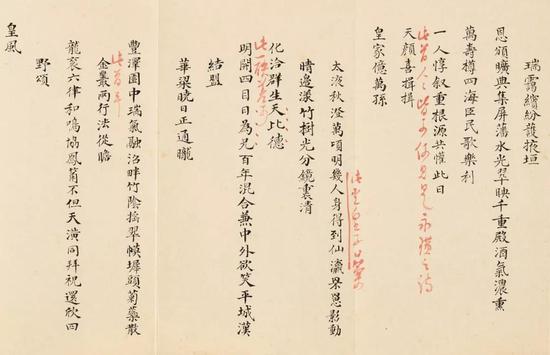 瑞靄繽紛護掖垣
恩頒曠典集屏藩水光翠映千重殿酒氣濃熏
萬壽樽四海臣民歌樂利
一人惇敘重根源共懽此日
此首人人皆可何見是永璜之詩
天顏喜揖揖
皇家億萬孫
太液秋澄萬頃明幾人身得到仙瀛罘罳影動
晴邊漾竹樹光分鏡裏清
化洽群生天比德
此一聯差可
明開四目日為兄百年混合兼中外欲笑平城漢
結盟
華梁曉日正通朧
豐澤園中瑞氣融沼畔竹陰搖翠幙墀頭菊蘂散
此首平
金叢兩行法從瞻
龍袞六律和鳴協鳳簫不但天潢同拜祝還欣四
野頌
皇風